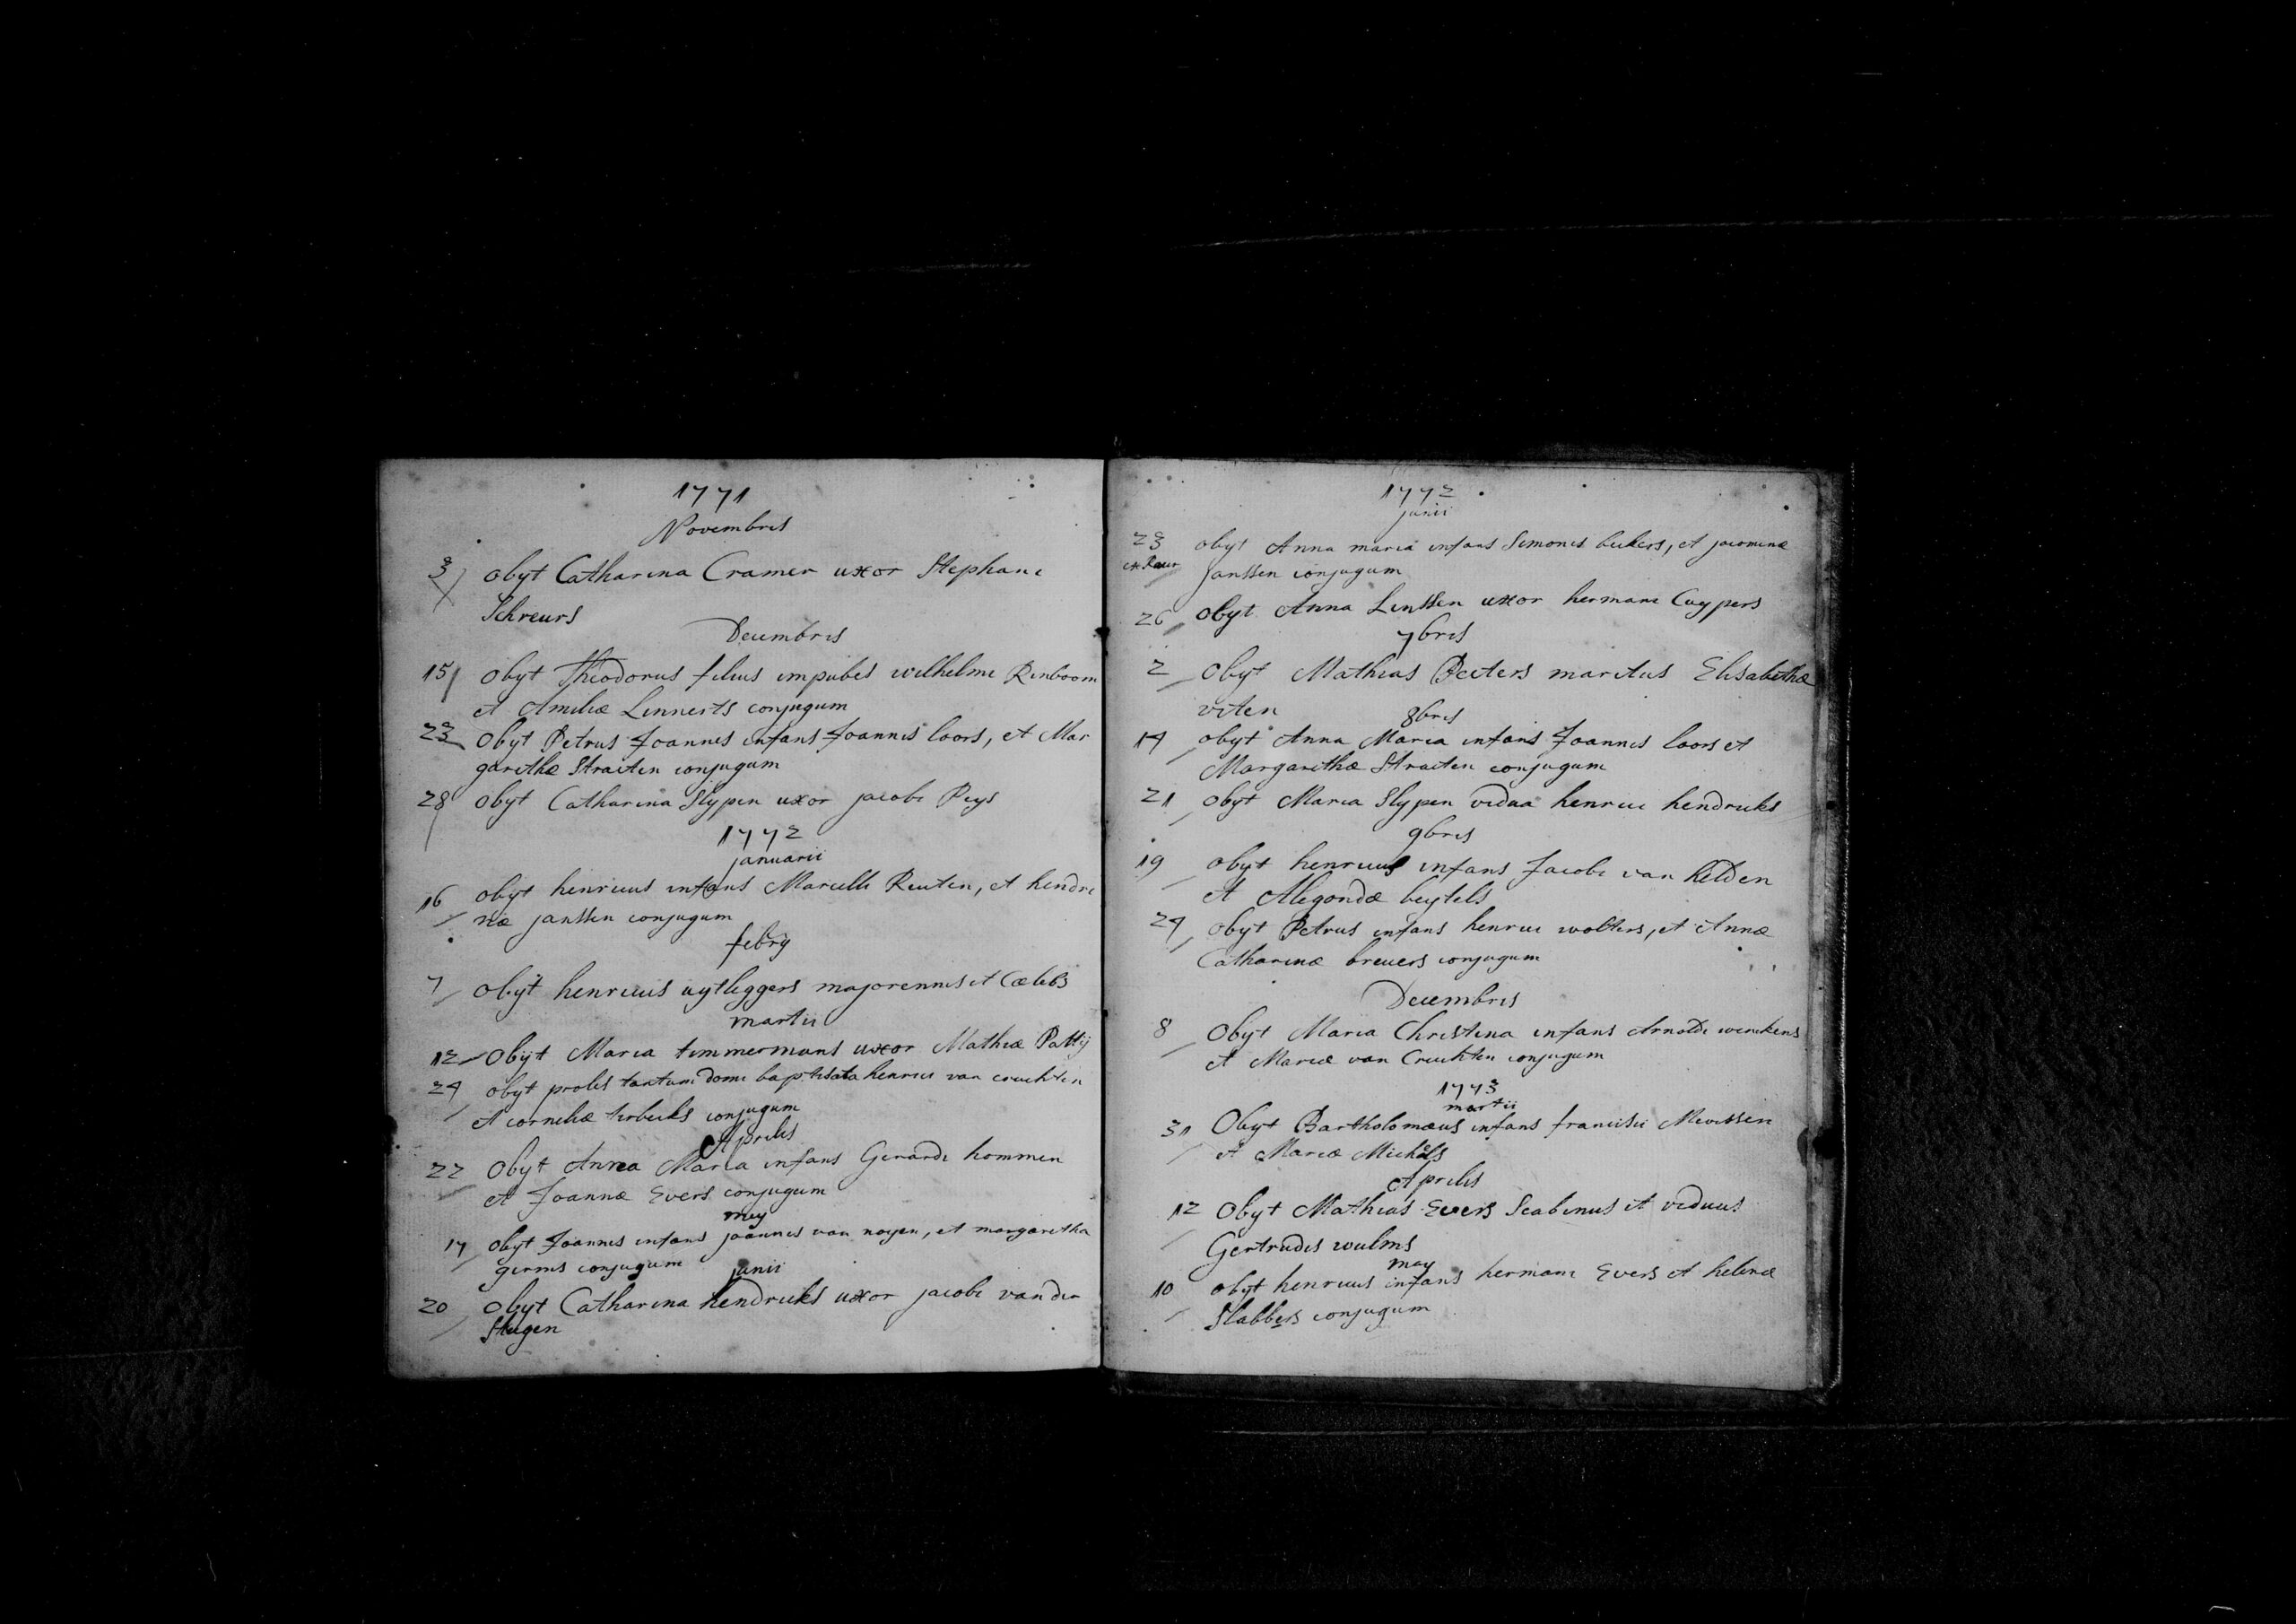 1771
Novembris
3 obyt Catharina Cramer uxor Stephani
Schreurs
Decembris
15 obyt Theodorus filius impubes wilhelmi Rinboom
et Amiliæ Linnerts conjugum
23 obyt Petrus Joannes infans Joannis loors, et Mar
garithæ Straiten conjugum
28 obyt Catharina Slypen uxor jacobi Peys
1772
januarii
16 obyt henricus infans Marcelli Reuten, et hendri
næ janssen conjugum
febrij
7 obyt henricus uytleggers majorennis et Cælebs
martii
12 obyt Maria timmermans uxor Mathiæ Pattij
24 obyt proles tantum domi baptisata henrici van cruchten
et corneliæ turbecks conjugum
Aprilis
22 obyt Anna Maria infans Gerardi hommen
et Joannæ Evers conjugum
may
17 obyt Joannes infans joannes van noyen, et margaretha
germs conjugum
junii
20 obyt Catharina hendricks uxor jacobi vander
Stegen
1772
junii
23 obyt Anna maria infans Simonis bickers, et jacominæ
janssen conjugum
26 obyt Anna Linssen uxor hermani Cuypers
7bris
2 obyt Mathias Peeters maritus Elisabethæ
viten
8bris
14 obyt Anna Maria infans Joannis loors et
Margarithæ Straiten conjugum
21 obyt Maria Slypen vidua henrici hendricks
9bris
19 obyt henricus infans Jacobi van helden
et Alegondæ beytels
24 obyt Petrus infans henrici wolters, et Annæ
Catharinæ brevers conjugum
Decembris
8 obyt Maria Christina infans Arnoldi winckens
et Mariæ van Cruchten conjugum
1773
martii
31 Obyt Bartholomæus infans francisci Mevissen
et Mariæ Michels
Aprilis
12 obyt Mathias Evers Scabinus et viduus
Gertrudis wulms
may
10 obyt henricus infans hermani Evers et helenæ
Slabbers conjugum